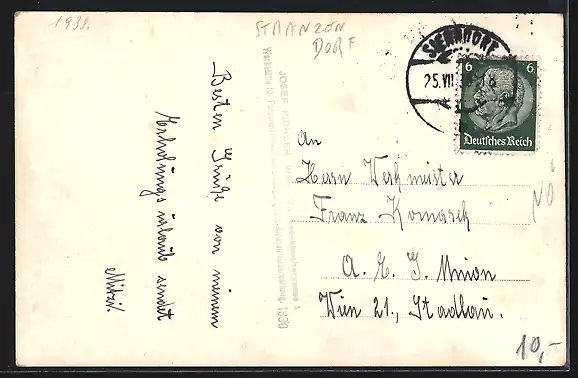 1938.
STRANZEN
DORF
SIERNDORF
25.VII.
6 6
Deutsches Reich
Besten Grüße von meinem
Erholungsurlaub sendet
Mitzi.
JOSEF PICHLER
1938
An
Herrn Werkmeister
Franz Komarek
A. E. G. Union
Wien 21., Stadlau.
NÖ
10,-